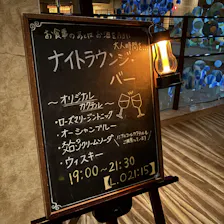 お食事のあとは お酒と
大人時間を
ナイトラウンジ・
バー
〜オリジナル
カクテル〜
・ローズマリージントニック
・オーシャンブルー
メロンクリームソーダ
・ウィスキー
19:00〜21:30
L.O 21:15